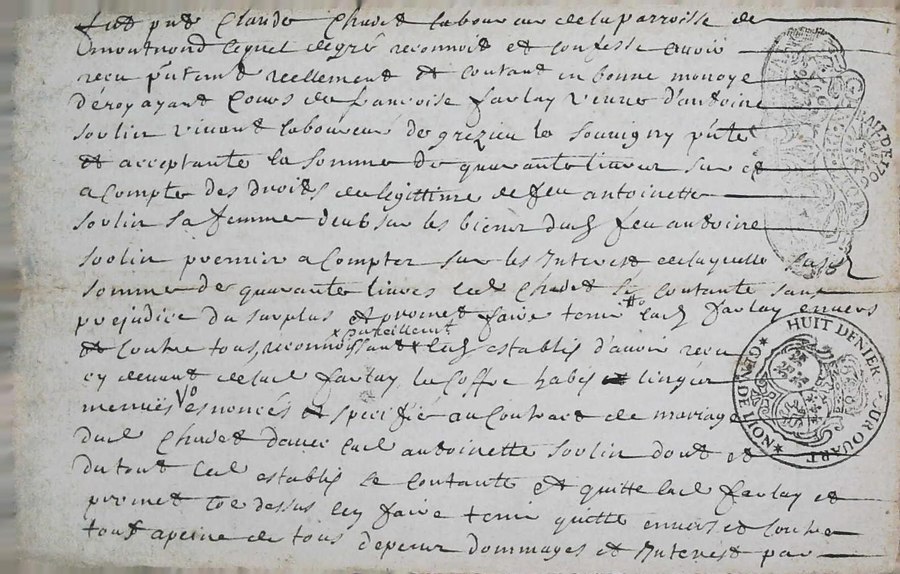 fut pnt Claude Chavet laboureur de la parroisse de
montrond lequel de gré reconnoit et confesse avoir
recu pntemt reellement et contant en bonne monoye
de roy ayant cours de francoise farlay veuve d'antoine
soulin vivant laboureur de grezieu le souvigny pnte
et acceptante la somme de quarante livres sur et
a compte des droits de legittime de feu antoinette
soulin sa femme deub sur les biens dud feu antoine
soulin premier a compter sur les Interest de laquelle
somme de quarante livres led Chavet se contante sans
prejudice du surplus et promet faire tenir lad farlay envers
et contre tous, reconnoissant led establis d'avoir recu
pareillement
cy devant de lad farlay le coffre habis linges
menues esnoncés et speciffié au contract de mariage
dud Chavet d'avec lad antoinette soulin dont et
du tout led establis se contante et quitte lad farlay et
promet de dessus len faire tenir quitte envers et contre
tous a peine de tous depens dommages et Interest par
HUIT DENIER